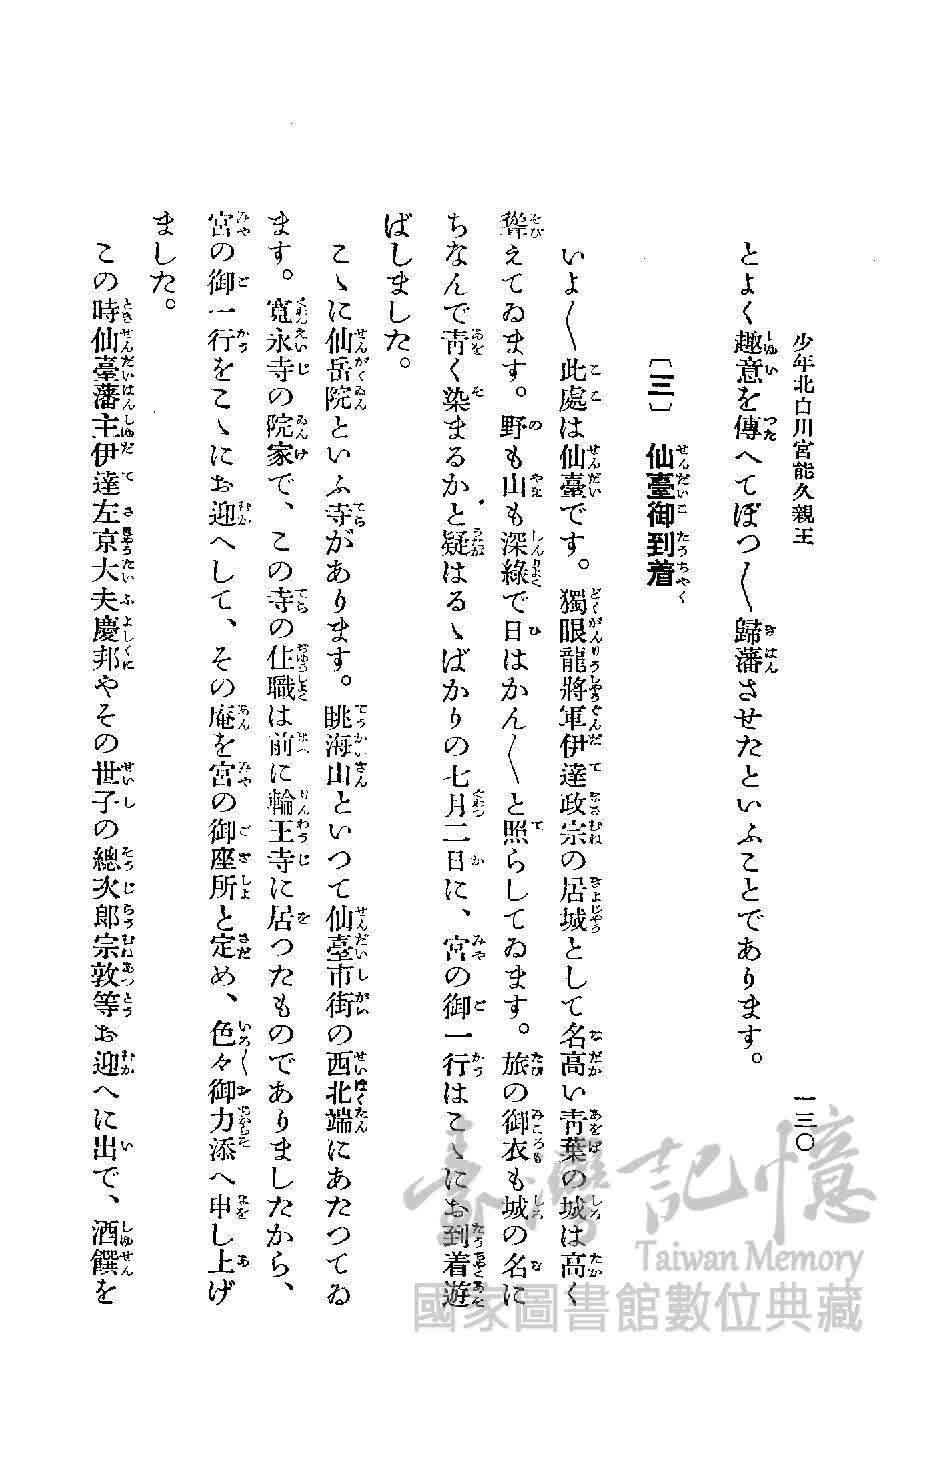 少年北白川宮能久親王　一三〇
とよく趣意を傳へてぼつ〱歸藩させたといふことであります。
〔三〕　仙臺御到着
いよ〱此處は仙臺です。獨眼龍將軍伊達政宗の居城として名高い靑葉の城は高く
聳えてゐます。野も山も深綠で日はかん〱と照らしてゐます。旅の御衣も城の名に
ちなんで靑く染まるかと疑はるゝばかりの七月二日に、宮の御一行はこゝにお到着遊
ばしました。
こゝに仙岳院といふ寺があります。眺海山といつて仙臺市街の西北端にあたつてゐ
ます。寬永寺の院家で、この寺の住職は前に輪王寺に居つたものでありましたから、
宮の御一行をこゝにお迎へして、その庵を宮の御座所と定め、色々御力添へ申し上げ
ました。
この時仙臺藩主伊達左京大夫慶邦やその世子の總次郎宗敦等お迎へに出で、酒饌を
臺灣記憶
Taiwan Memory
國家圖書館數位典藏